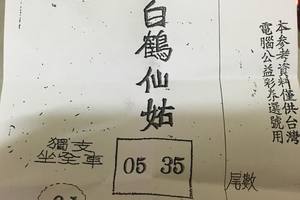 本参考資料僅供台灣
電腦公益彩券選號用
白鶴仙姑
獨支
坐全車
05 35
尾數